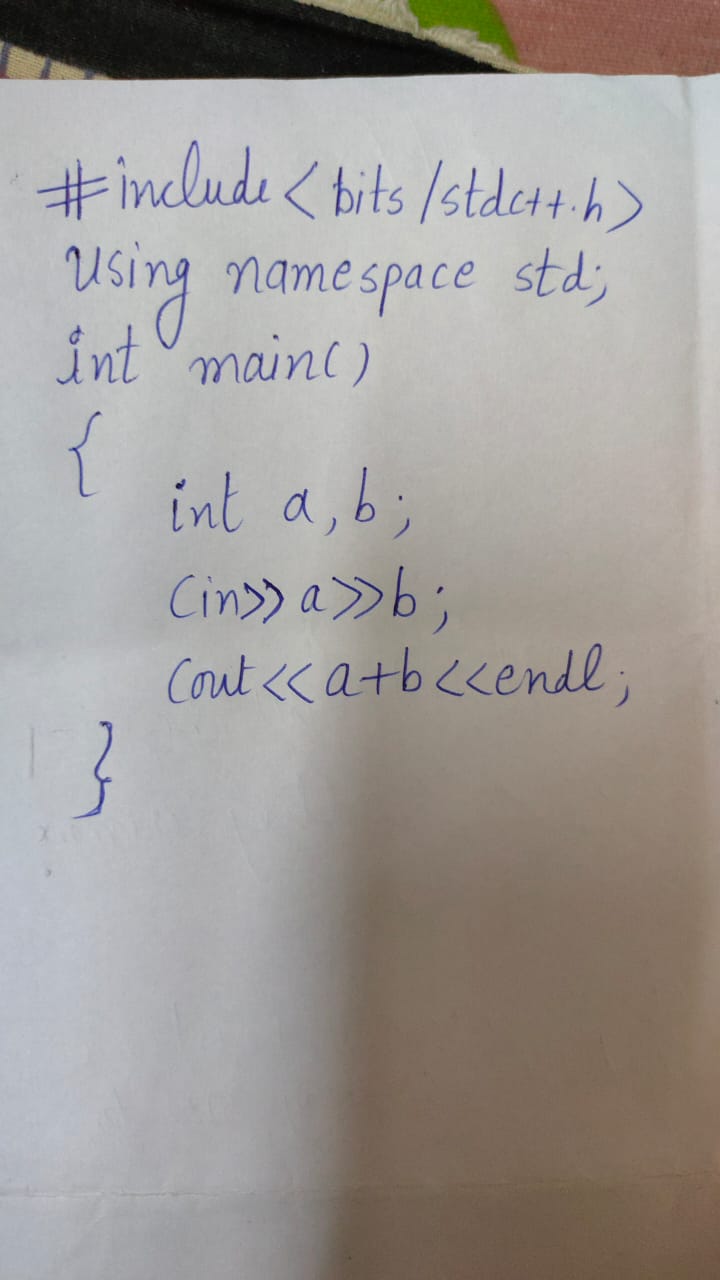 #include<bits/stdc++.h>
using namespace std;
int main()
{
int a,b;
cin>>a>>b;
cout<<a+b<<endl;
}